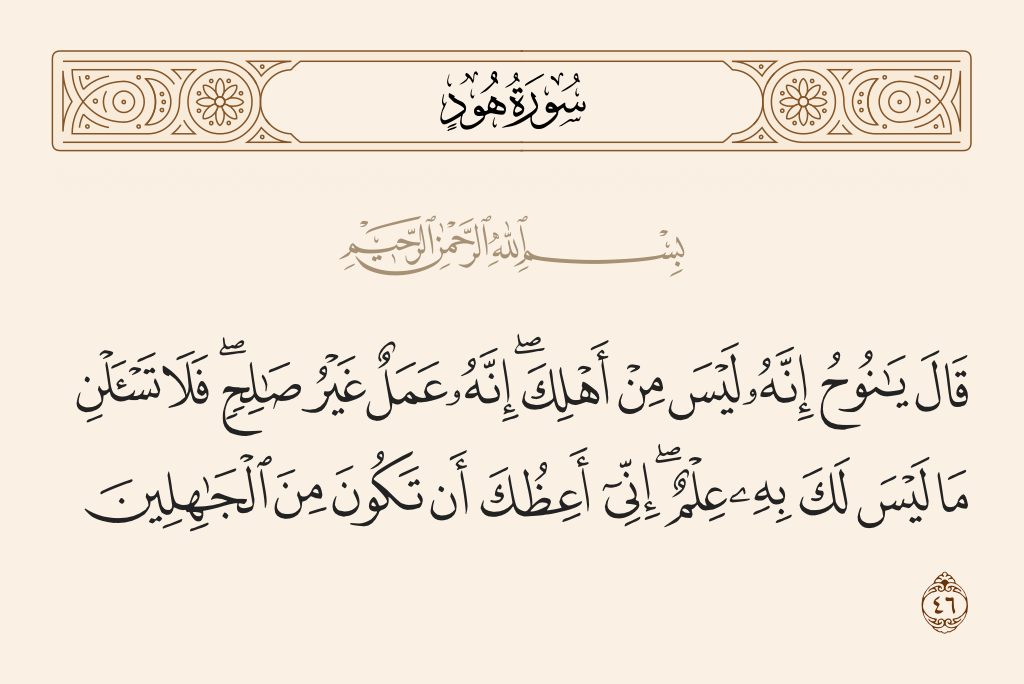 سُورَةُ هُودٍ
بِسْمِ ٱللَّهِ ٱلرَّحْمَٰنِ ٱلرَّحِيمِ
قَالَ يَـٰنُوحُ إِنَّهُۥ لَيْسَ مِنْ أَهْلِكَ ۖ إِنَّهُۥ عَمَلٌ غَيْرُ صَـٰلِحٍ ۖ فَلَا تَسْـَٔلْنِ
مَا لَيْسَ لَكَ بِهِۦ عِلْمٌ ۖ إِنِّىٓ أَعِظُكَ أَن تَكُونَ مِنَ ٱلْجَـٰهِلِينَ
٤٦